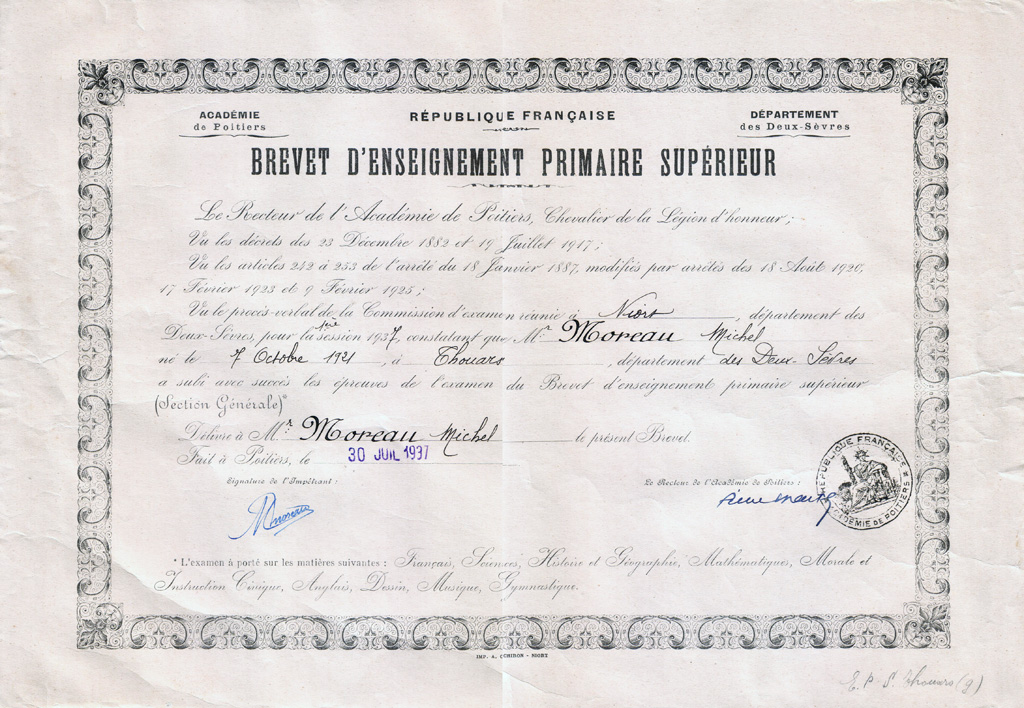 ACADÉMIE
de Poitiers
RÉPUBLIQUE FRANÇAISE
DÉPARTEMENT
des Deux-Sèvres
BREVET D'ENSEIGNEMENT PRIMAIRE SUPÉRIEUR
Le Recteur de l'Académie de Poitiers, Chevalier de la Légion d'honneur ;
Vu les décrets des 23 Décembre 1882 et 19 Juillet 1917 ;
Vu les articles 242 à 253 de l'arrêté du 18 Janvier 1887, modifiés par arrêtés des 18 Août 1920,
17 Février 1923 et 9 Février 1925 ;
Vu le procès-verbal de la Commission d'examen réunie à Niort, département des
Deux-Sèvres, pour la 1ère session 1937, constatant que Mr Moreau Michel
né le 7 Octobre 1921, à Thouars, département des Deux-Sèvres
a subi avec succès les épreuves de l'examen du Brevet d'enseignement primaire supérieur
(Section Générale)*
Délivré à Mr Moreau Michel le présent Brevet.
Fait à Poitiers, le 30 JUIL 1937
Signature de l'Impétrant :
Le Recteur de l'Académie de Poitiers :
RÉPUBLIQUE FRANÇAISE
ACADÉMIE DE POITIERS
* L'examen a porté sur les matières suivantes : Français, Sciences, Histoire et Géographie, Mathématiques, Morale et
Instruction Civique, Anglais, Dessin, Musique, Gymnastique.
IMP. A. CHIRON - NIORT
E. P. S. Thouars (g)